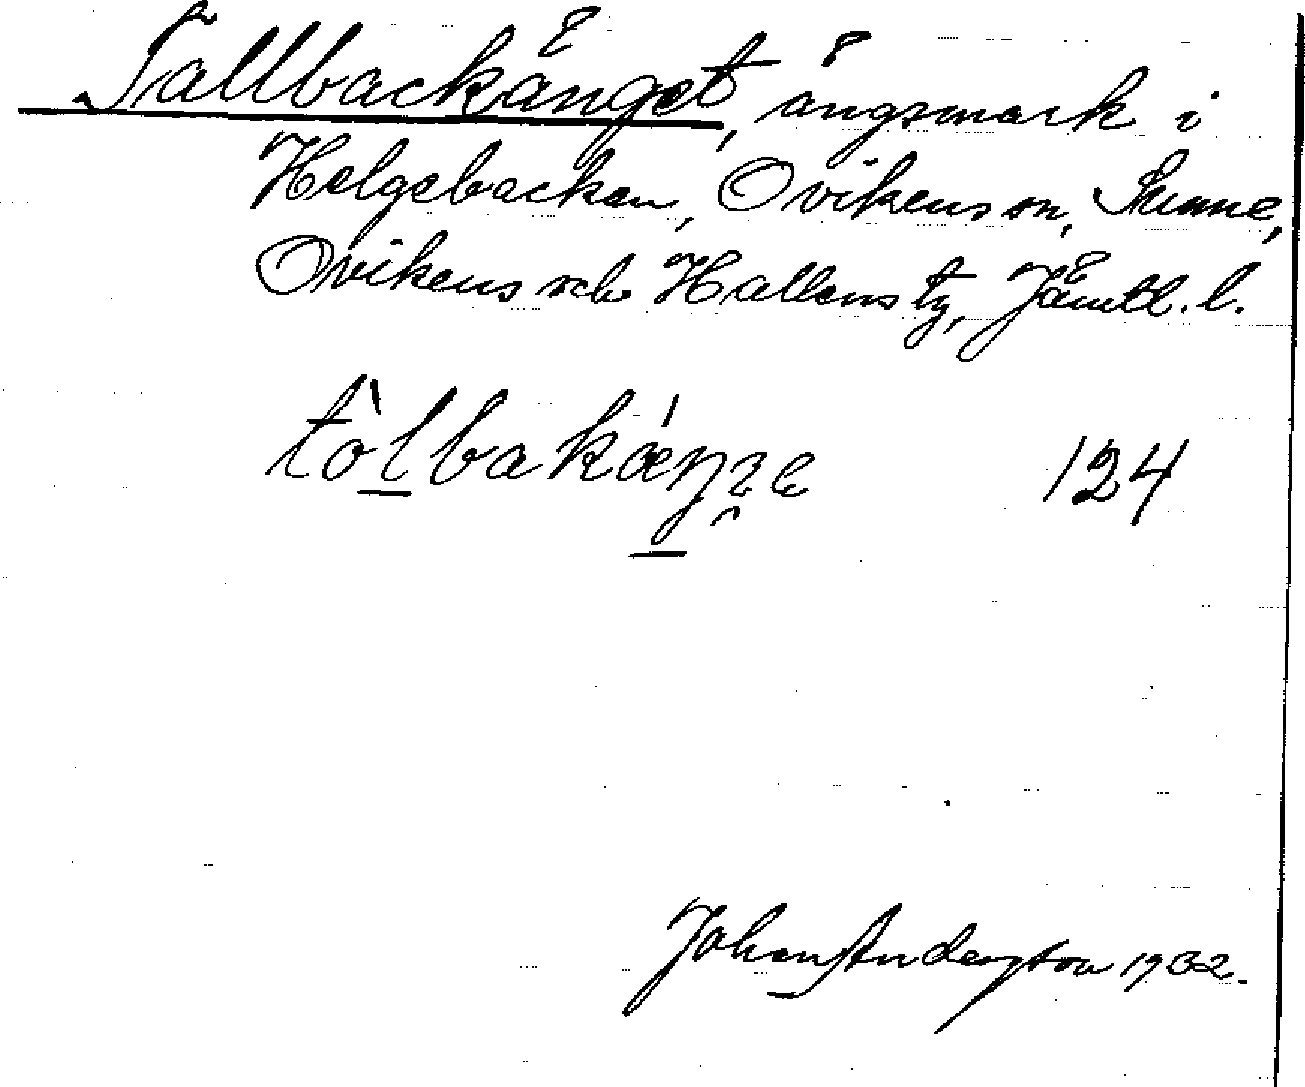 Tallbackänget, ängsmark i
Helgebacken, Ovikens sn, Sunne,
Ovikens och Hallens tg, Jämtl. l.
tòlbakáŋŋe 124
Johan Anderzon 1932.